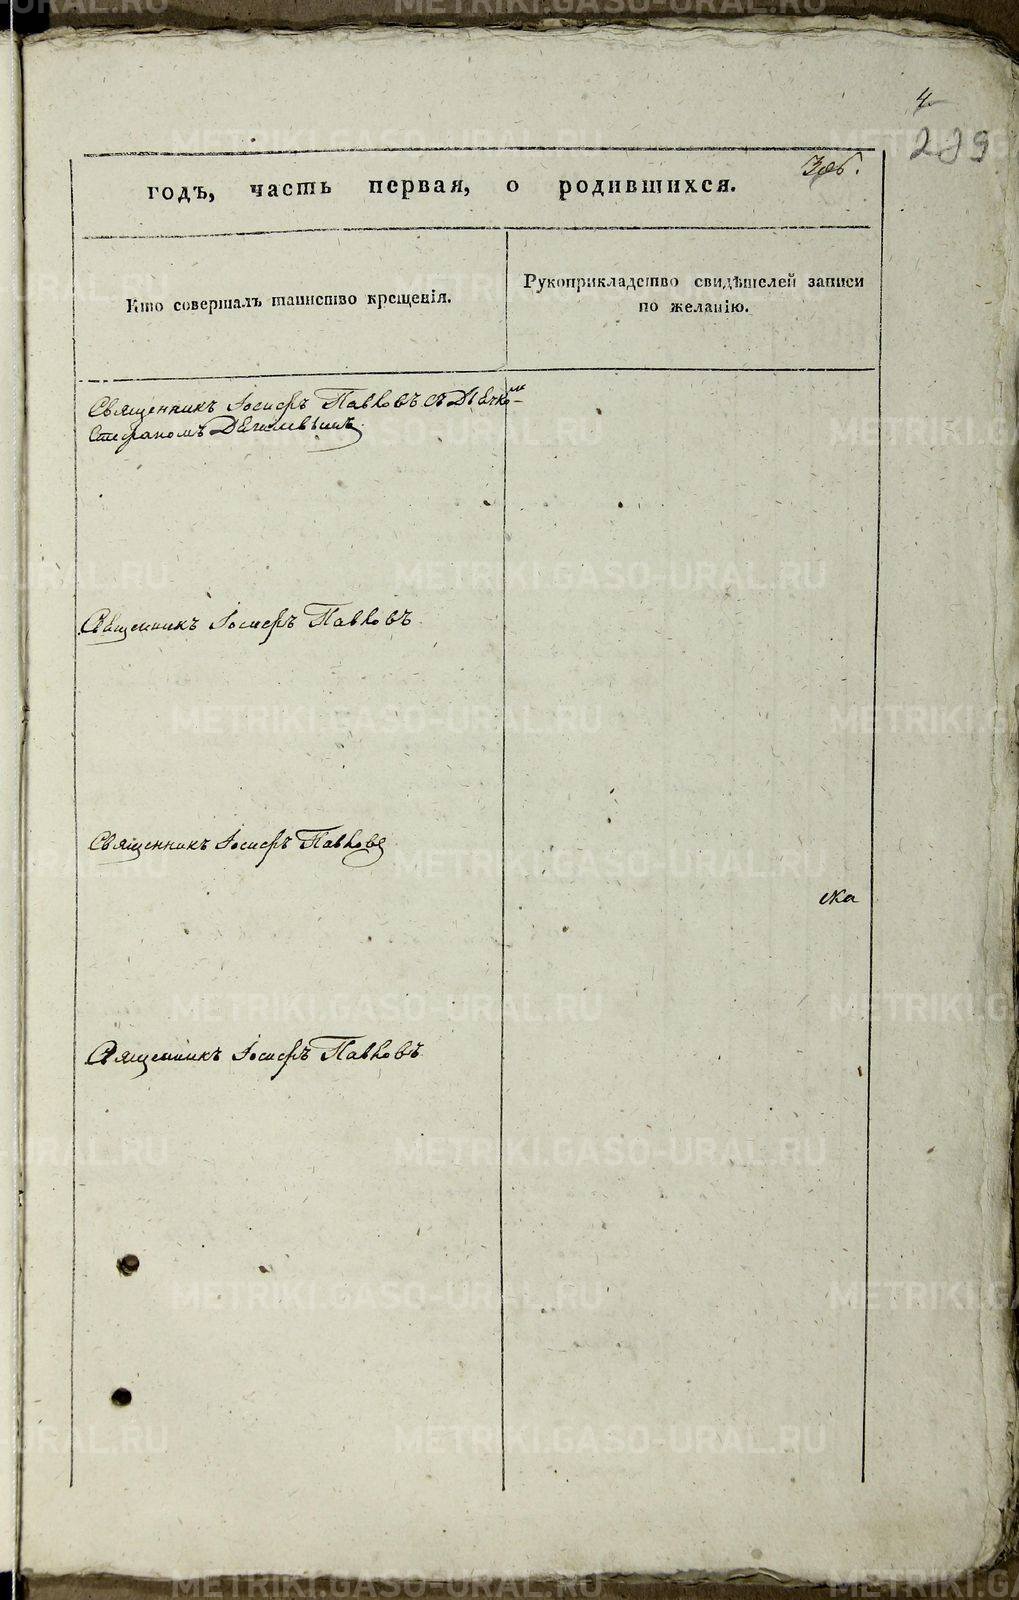 4
239
годъ, часть первая, о родившихся.
Кто совершалъ таинство крещенія.
Рукоприкладство свидѣтелей записи
по желанію.
Священникъ Іосифъ Павковъ съ Дьячко-
Стефаномъ
Священникъ Іосифъ Павковъ
Священникъ Іосифъ Павковъ
ска
Священникъ Іосифъ Павковъ
METRIKI.GASO-URAL.RU